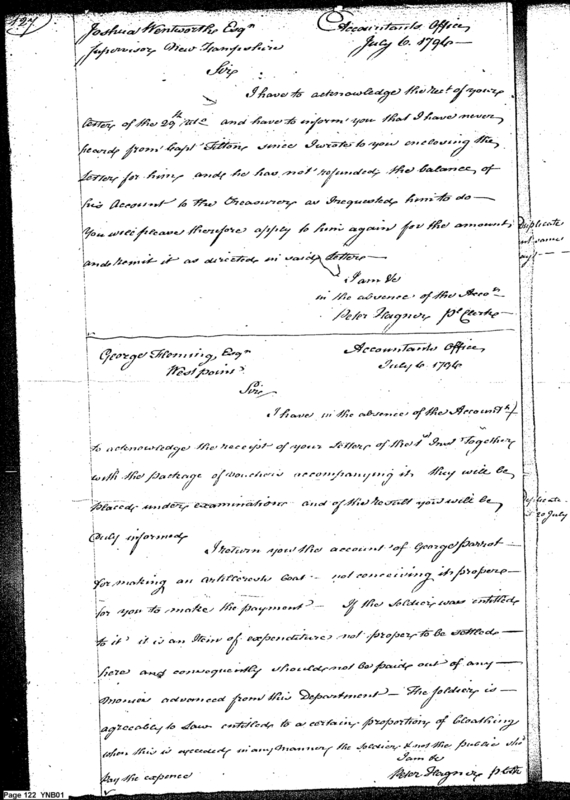 127
Joshua Wentworth Esqr
Supervisor New Hampshire
Accountants Office
July 6. 1794
Sir
I have to acknowledge the rect of your
letter of the 29th Ulto and have to inform you that I have never
heard from Capt Tilton since I wrote to you enclosing the
letter for him, and he has not refunded the balance of
his Account to the Treasurer as I requested him to do —
You will please therefore apply to him again for the amount,
and remit it as directed in said letter
I am &c
in the absence of the Accot
Peter Hagner pl Clerk
Duplicate
same
day
George Fleming, Esqr
West point
Accountants Office,
July 6. 1794
Sir
I have in the absence of the Accountt
to acknowledge the receipt of your letter of the 1st Inst Together
with the package of vouchers accompanying it they will be
placed under examination and of the result you will be
duly informed
I return you the account of George Parrot —
for making an artillerists Coat — not conceiving it proper —
for you to make the payment — If the Soldier was entitled
to it it is an Item of expenditure not proper to be settled —
here and consequently should not be paid out of any —
monies advanced from this Department — The Soldier is —
agreeably to Law entitled to a certain proportion of Cloathing
when this is exceeded in any manner the soldier & not the public shd
pay the expence
I am &c
Peter Hagner pl Clk
plicate
20 July
Page 122 YNB01